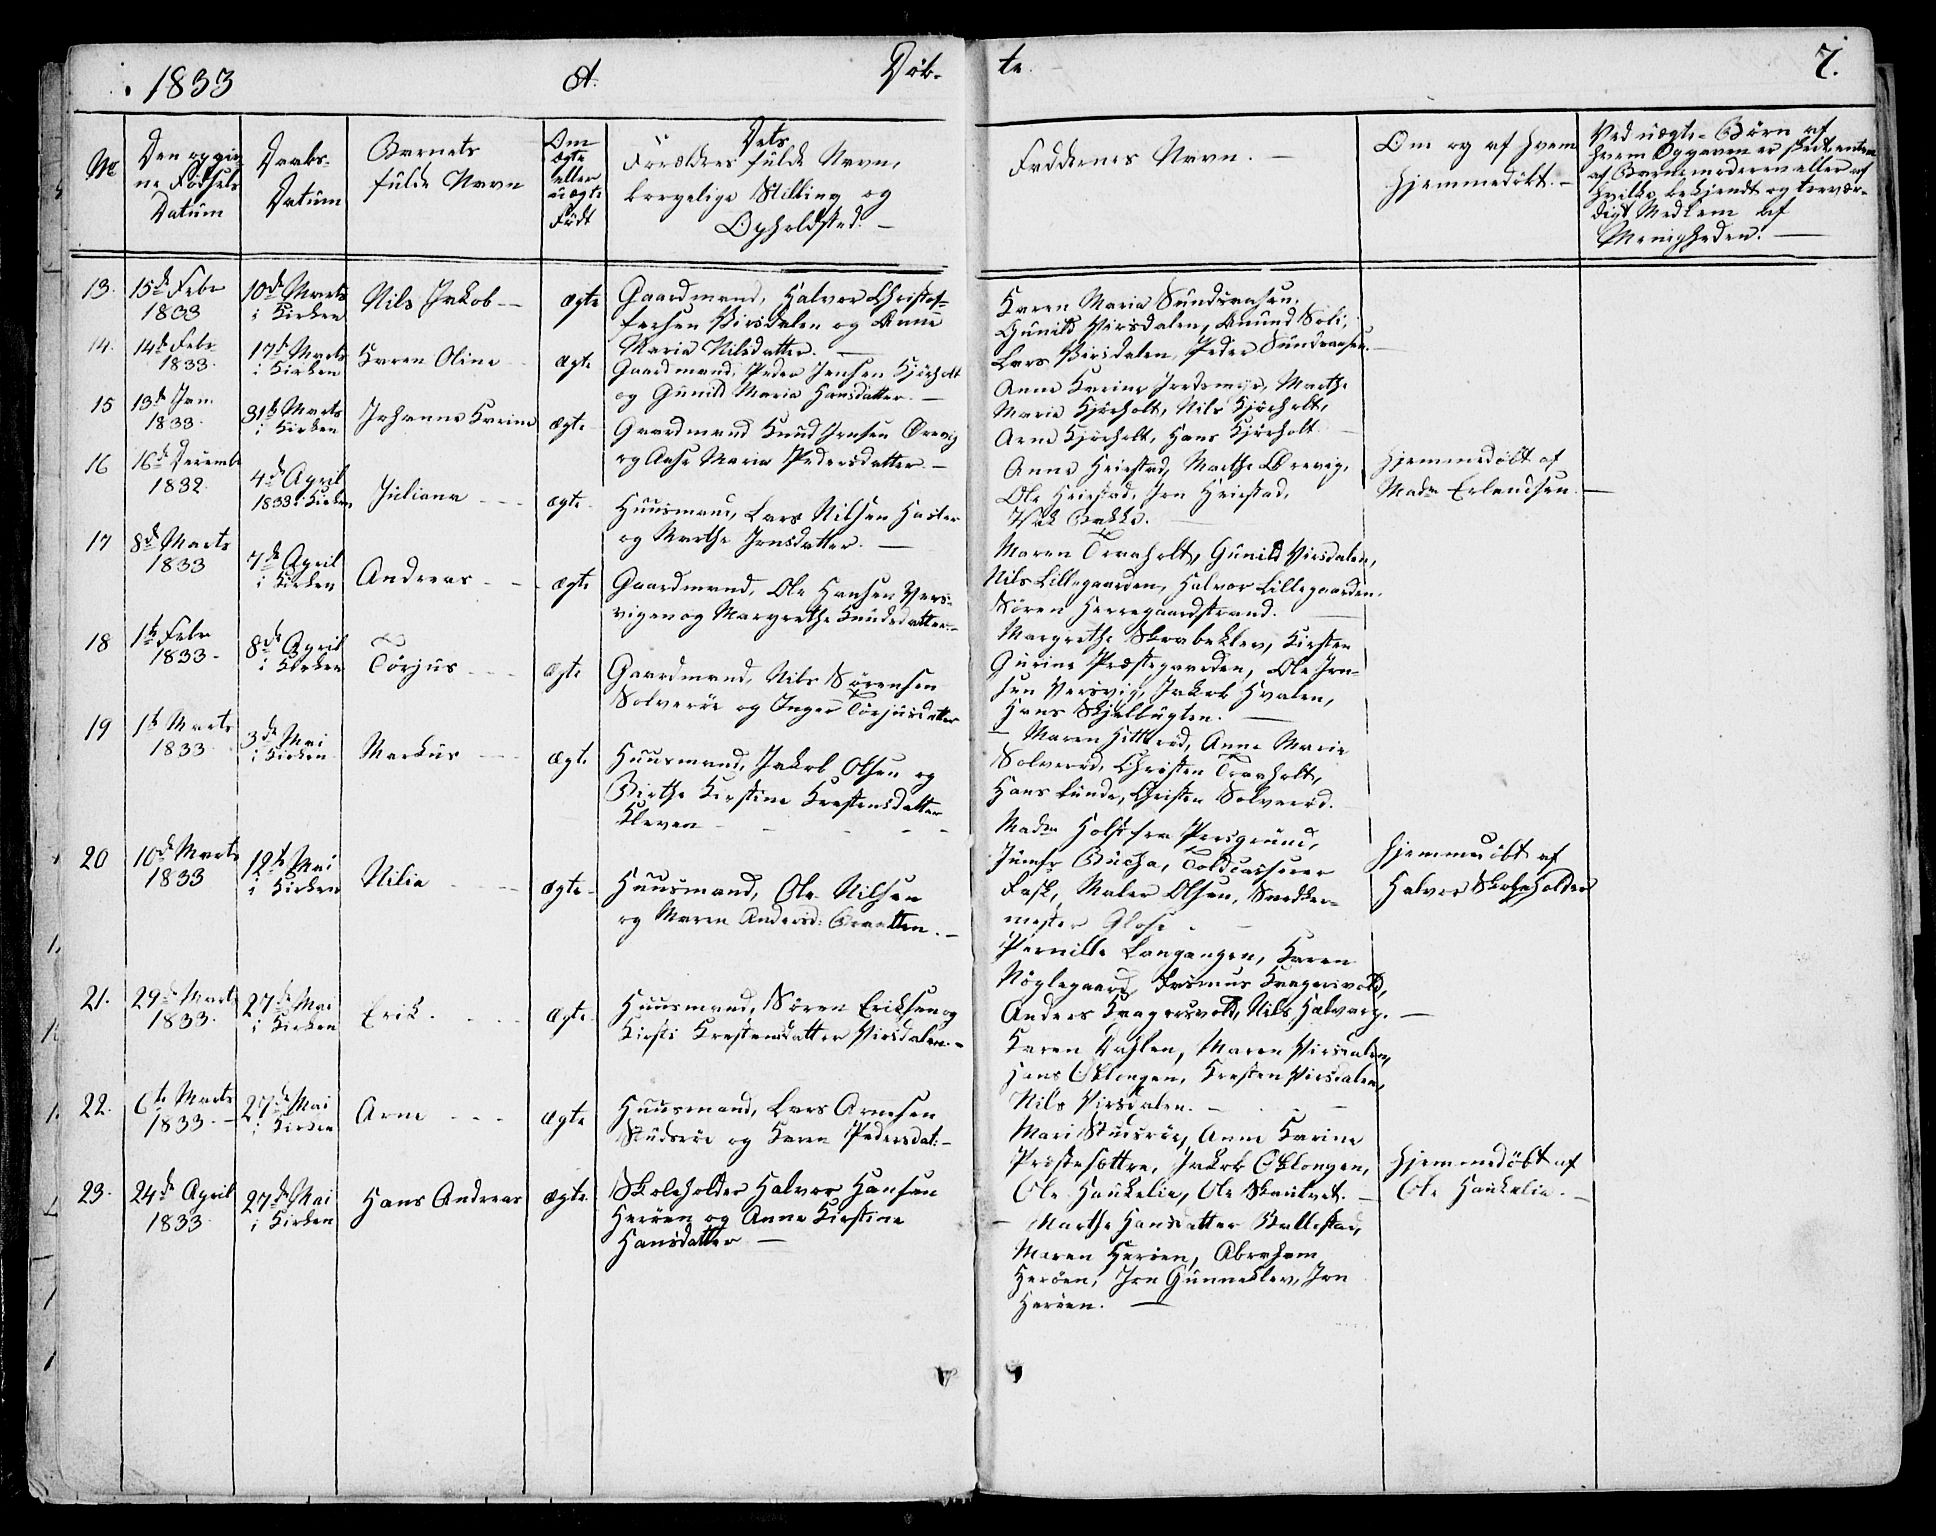 1833
A.
Døb-
te.
7.
No
Den opgiv-
ne Fødsels
Datum
Daabs-
Datum
Barnets
fulde Navn
Om
ægte
eller
uægte
Født
Dets
Forældres fulde Navn,
borgelige Stilling og
Opholdsted. -
Faddernes Navn. -
Om og af hvem
hjemmedøbt. -
Ved uægte Børn af
hvem Opgaven er skedt enten
af Barnemoderen eller af
hvilke bekjendt og troevær-
digt Medlem af
Menigheden. -
13.
15de Febr
1833
10de Marts
i Kirken
Nils Jakob -
ægte
Gaardmand, Halvor Christof-
fersen Virsdalen og Anne
Maria Nilsdatter. -
Karen Maria
Gunild Virsdalen, Amund Soli,
Lars Virsdalen, Peder
14.
14de Febr
1833.
17de Marts
i Kirken
Karen Oline -
ægte
Gaardmand, Peder Jensen Kjørholt
og Gunild Maria Hansdatter. -
Anne Karine Marthe
Maria Kjørholt, Nils Kjørholt,
Arne Kjørholt, Hans Kjørholt
15
13de Jan.
1833.
31te Marts
i Kirken
Johanne Karine
ægte
Gaardmand Knud Jensen Ørevig
og Aase Maria Pedersdatter -
Anne Heiestad, Marthe Ørevig,
Ole Heiestad, Jon Heiestad,
Isak Bakke.
16
16de Decembr
1832.
4de April
1833 i Kirken
Juliane - - -
ægte
Huusmand, Lars Nilsen
og Marthe Jensdatter. -
Maren Traaholt, Gunild Virsdalen,
Nils Lillegaarden, Halvor Lillegaarden,
Søren Herregaardstrand.
hjemmedøbt af
Madm Erlandsen. -
17
8de Marts
1833
7de April
i Kirken
Andreas - -
ægte
Gaardmand, Ole Hansen Vers-
vigen og Margrethe Knudsdatter. -
Margrethe Skrabeklev, Kirsten
Gurine Præstegaarden, Ole Jen-
sen Versvig, Jakob Hvalen,
Hans Skjelbugten. -
18
1te Febr
1833 -
8de April
i Kirken
Torjus - - -
ægte
Gaardmand, Nils Sørensen
Solverøe og Inger Torjusdatter
- Maren Hitterød, Anne Marie
Solverød, Christen Traaholt,
Hans Lunde, Christen Solverød.
19
1te Marts
1833.
3de Mai
i Kirken
Markus - - -
ægte
Huusmand, Jakob Olsen og
Birthe Kirstine Krestensdatter
Kleven - - - - -
Madm Holst fra Porsgrund,
Jumfr Bucha, Toldcasserer
Fask, Maler Olsen, Snedker-
mester Glose. -
20
10de Marts
1833
12te Mai
i Kirken
Nilia - - -
ægte -
Huusmand, Ole Nilsen
og Maren Andersd: Braatten. -
Pernille Langangen, Karen
Nøglegaard, Rasmus Kragersvold,
Anders Kragersvold, Nils Halvarp. -
hjemmedøbt af
Halvor Skoleholder
21.
29de Marts
1833.
27de Mai
i Kirken
Erik. - - -
ægte.
Huusmand, Søren Eriksen og
Kirsti Krestensdatter Virsdalen. -
Karen Dahlen, Maren Virsdalen,
Hans Oklongen, Kresten Virsdalen,
Nils Virsdalen. - - -
22.
6te Marts
1833. -
27de Mai
i Kirken
Arne - - -
ægte
Huusmand, Lars Arnesen
Studsrøe og Karen Pedersdat: -
Mari Studsrøe, Anne Karine
Præstesættre, Jakob Oklongen,
Ole Haukelie, Ole Skaulvet. -
hjemmedøbt af
Ole Haukelie. -
23.
24de April
1833.
27de Mai
i Kirken
Hans Andreas
ægte.
Skoleholder Halvor Hansen
Herøen og Anne Kirstine
Hansdatter -
- Marthe Hansdatter Ballestad,
Maren Herøen, Abraham
Herøen, Jon Gunneklev, Jon
Herøen. -